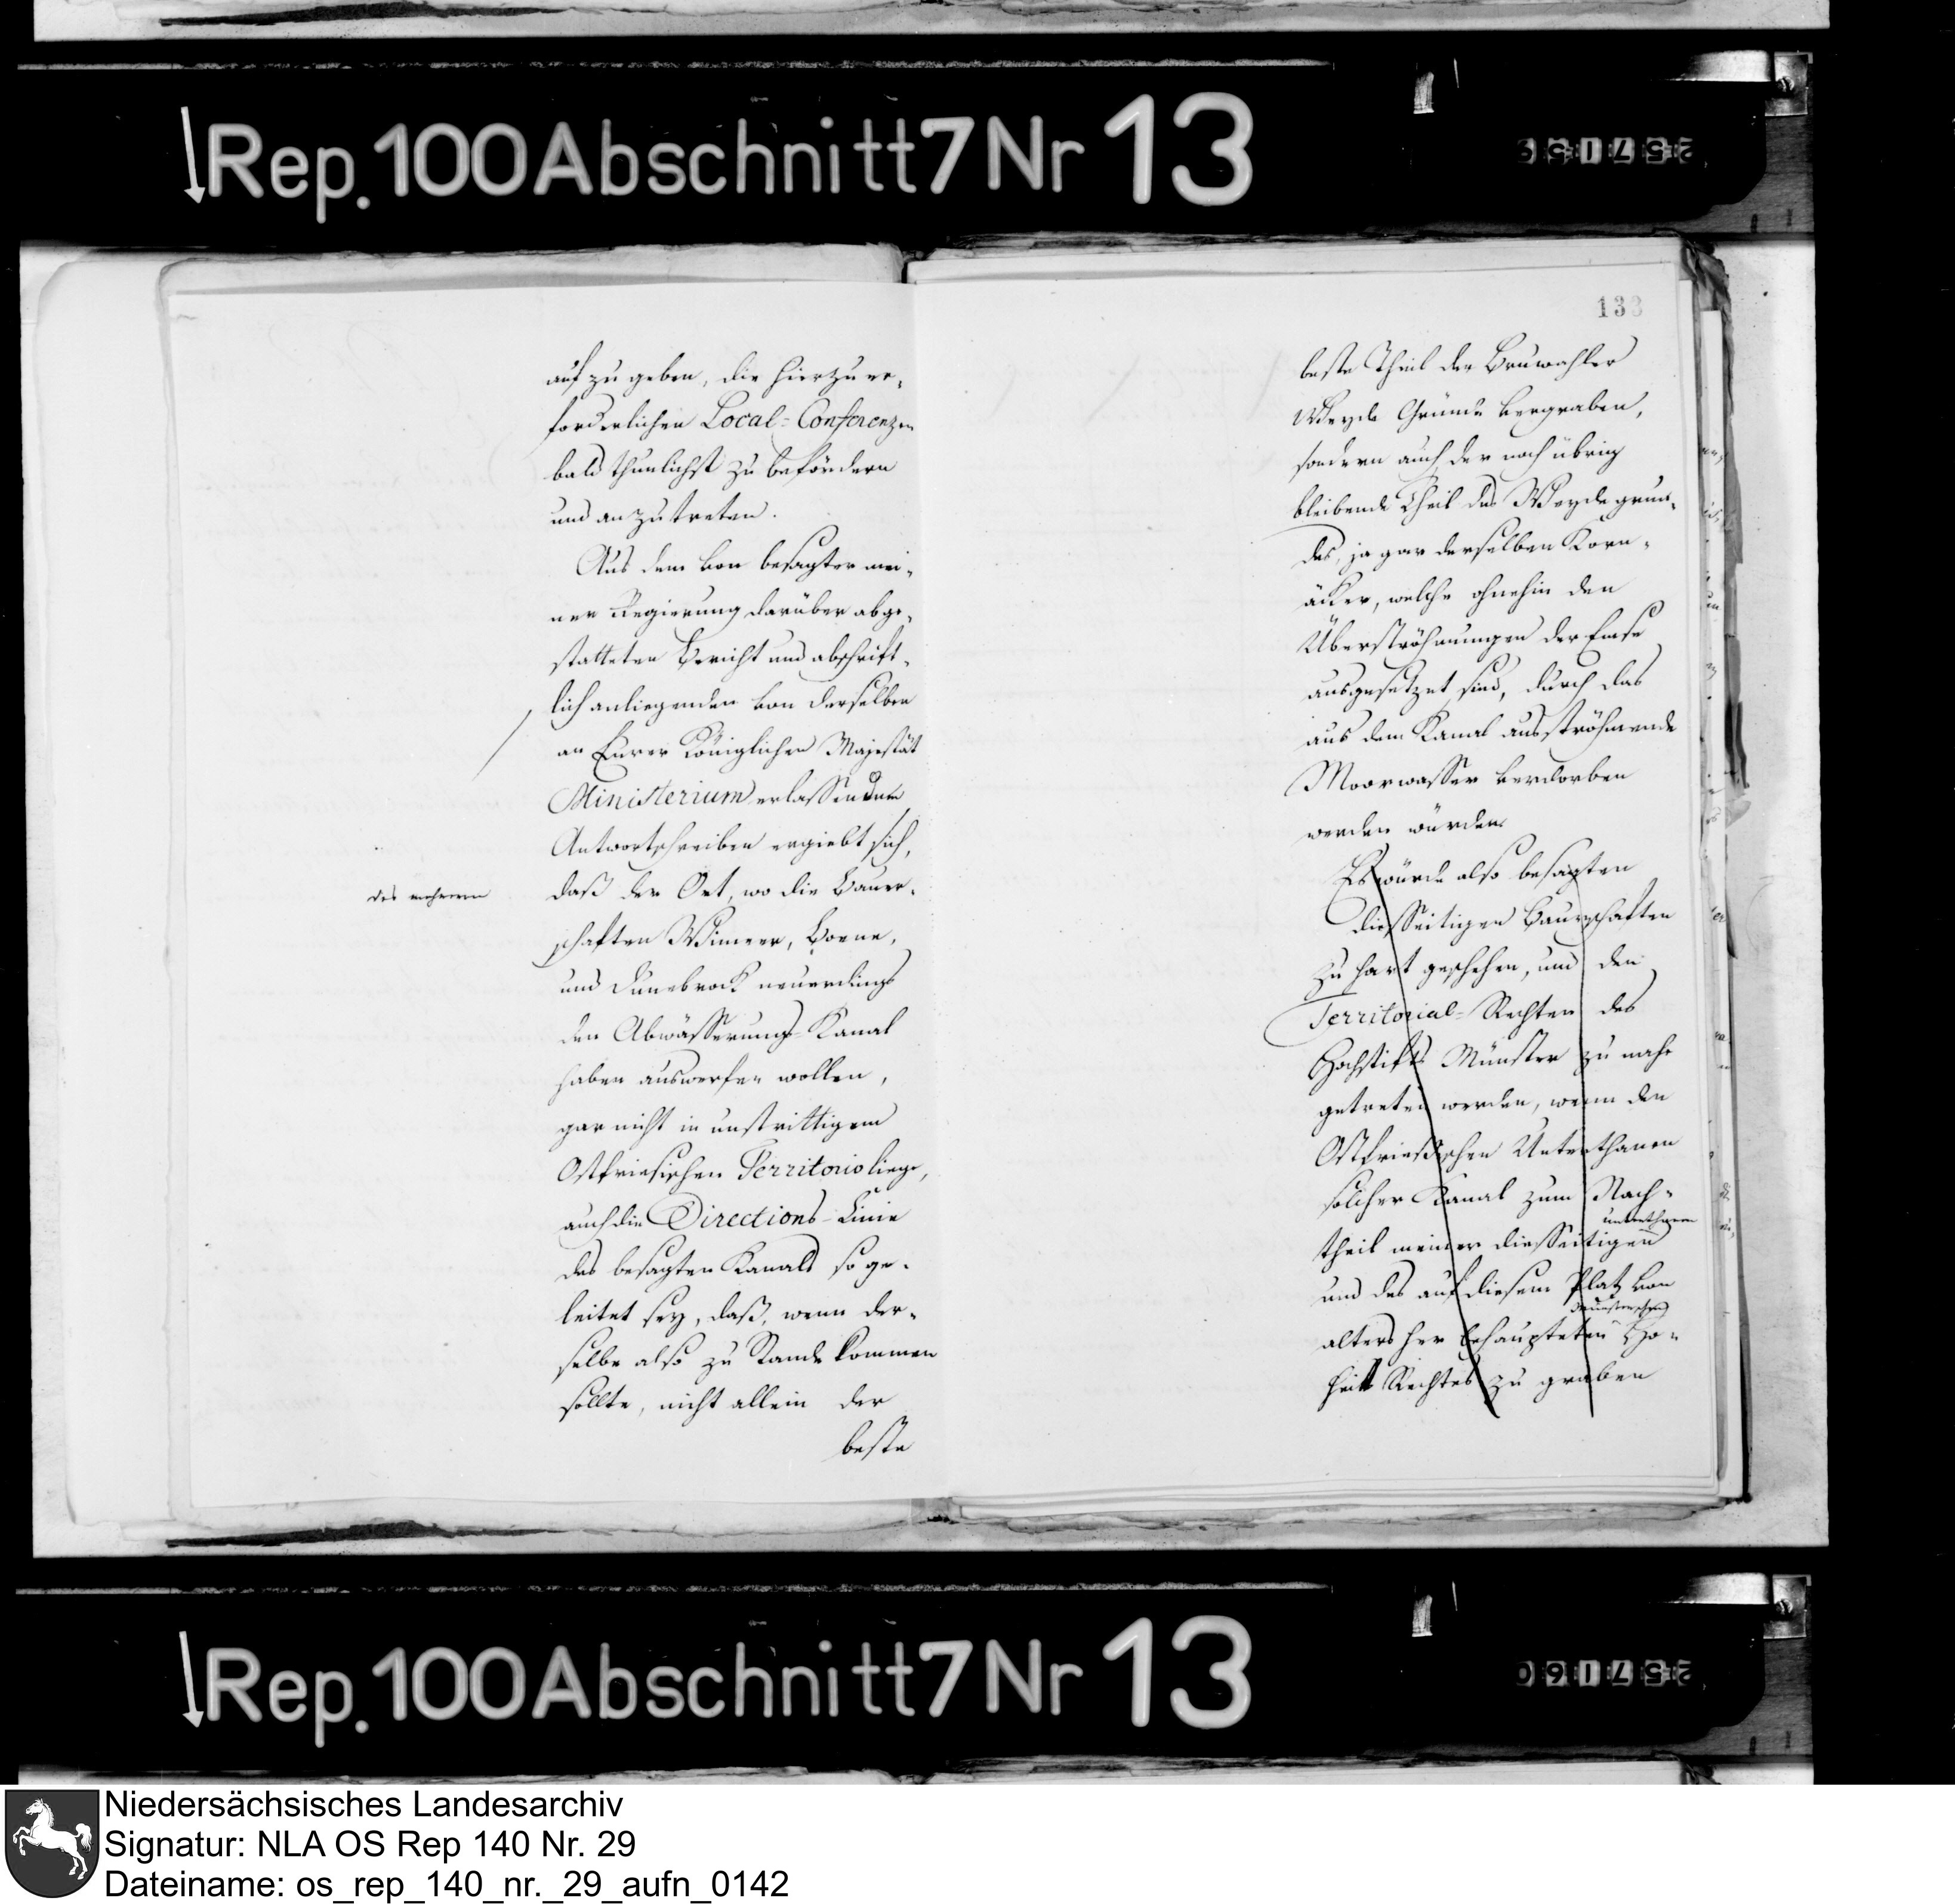 Rep. 100 Abschnitt 7 Nr 13
257159
auf zu geben, die hierzu er-
forderlichen Local-Conferenzen
bald thunlichst zu befördern
und an zu treten.
Aus dem von besagter mei-
ner Regierung darüber abge-
statteten Bericht und abschrift-
lich anliegenden von derselben
an Eurer Königlichen Majestät
Ministerium erlassenden
Antwortschreiben ergiebt sich,
des mehreren
daß der Ort, wo die Bauer-
schaften Wimeer, Borne,
und Dunebrock neuerdings
den Abwässerungs-Kanal
haben auswerfen wollen,
gar nicht in unstrittigem
Ostfriesischen Territorio liege,
auch die Directions-Linie
des besagten Kanals so ge-
leitet sey, daß, wenn der-
selbe also zu Stande kommen
sollte, nicht allein der
beste
133
beste Theil der Bruwahler
Weyde Gründe vergraben,
sondern auch der noch übrig
bleibende Theil des Weydegrun-
des, ja gar derselben Korn-
äcker, welche ohnehin den
Überströhmungen der Emse
ausgesetzet sind, durch das
aus dem Kanal ausströhmende
Moorwasser verdorben
werden würden.
Es würde also besagten
diesseitigen Baurschaften
zu hart geschehen, und den
Territorial-Rechten des
Hochstifts Münster zu nahe
getreten werden, wenn den
Ostfriesischen Unterthanen
solcher Kanal zum Nach-
unterthanen
theil meiner diesseitigen
und des auf diesem Platz von
Münsterschen
alters her behaupteten Ho-
heits Rechtes zu graben
Rep. 100 Abschnitt 7 Nr 13
257160
Niedersächsisches Landesarchiv
Signatur: NLA OS Rep 140 Nr. 29
Dateiname: os_rep_140_nr._29_aufn_0142